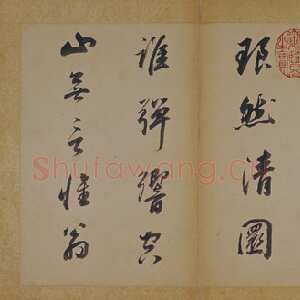 琅然清圜
谁弹響空
山無言惟翁
Shufawang.cn